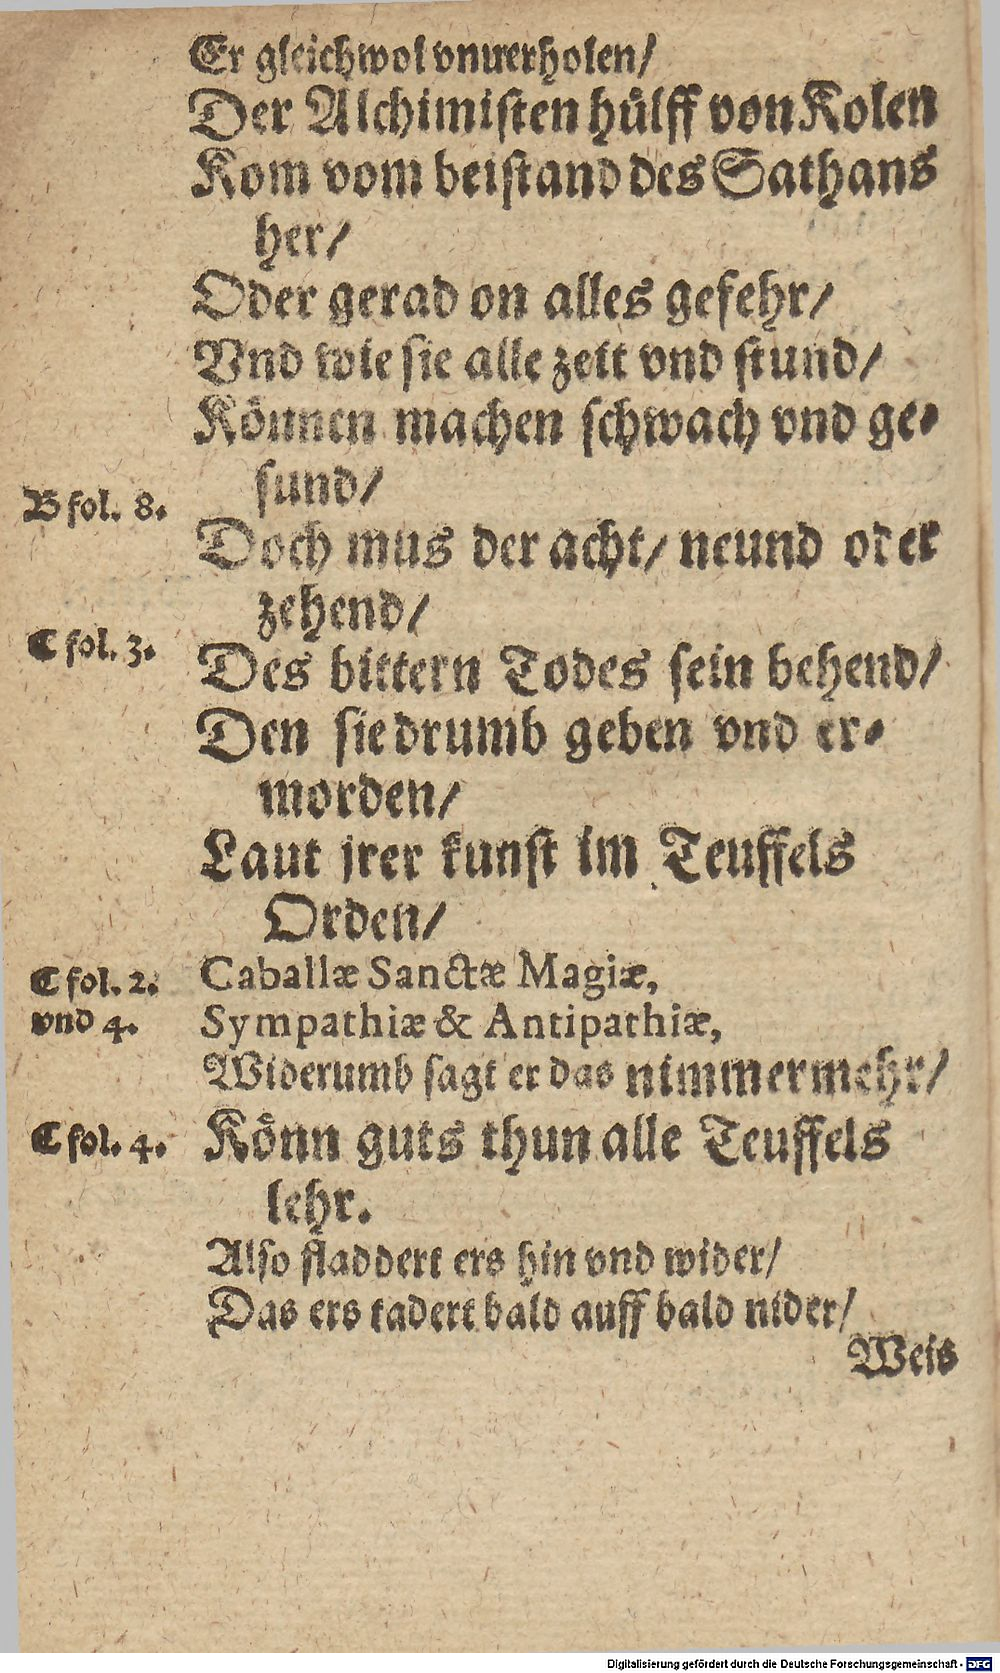 Er gleichwol vnuerholen/
Der Alchimisten hülff von Kolen
Kom vom beistand des Sathans
her/
Oder gerad on alles gefehr/
Vnd wie sie alle zeit vnd stund/
Können machen schwach vnd ge-
sund/
B fol. 8.
Doch mus der acht/ neund oder
zehend/
C fol. 3.
Des bittern Todes sein behend/
Den sie drumb geben vnd er-
morden/
Laut jrer kunst im Teuffels
Orden/
C fol. 2.
vnd 4.
Caballæ Sanctæ Magiæ,
Sympathiæ & Antipathiæ,
Widerumb sagt er das nimmermehr/
C fol. 4.
Könn guts thun alle Teuffels
lehr.
Also fladdert ers hin vnd wider/
Das ers tadert bald auff bald nider/
Weis
Digitalisierung gefördert durch die Deutsche Forschungsgemeinschaft - DFG